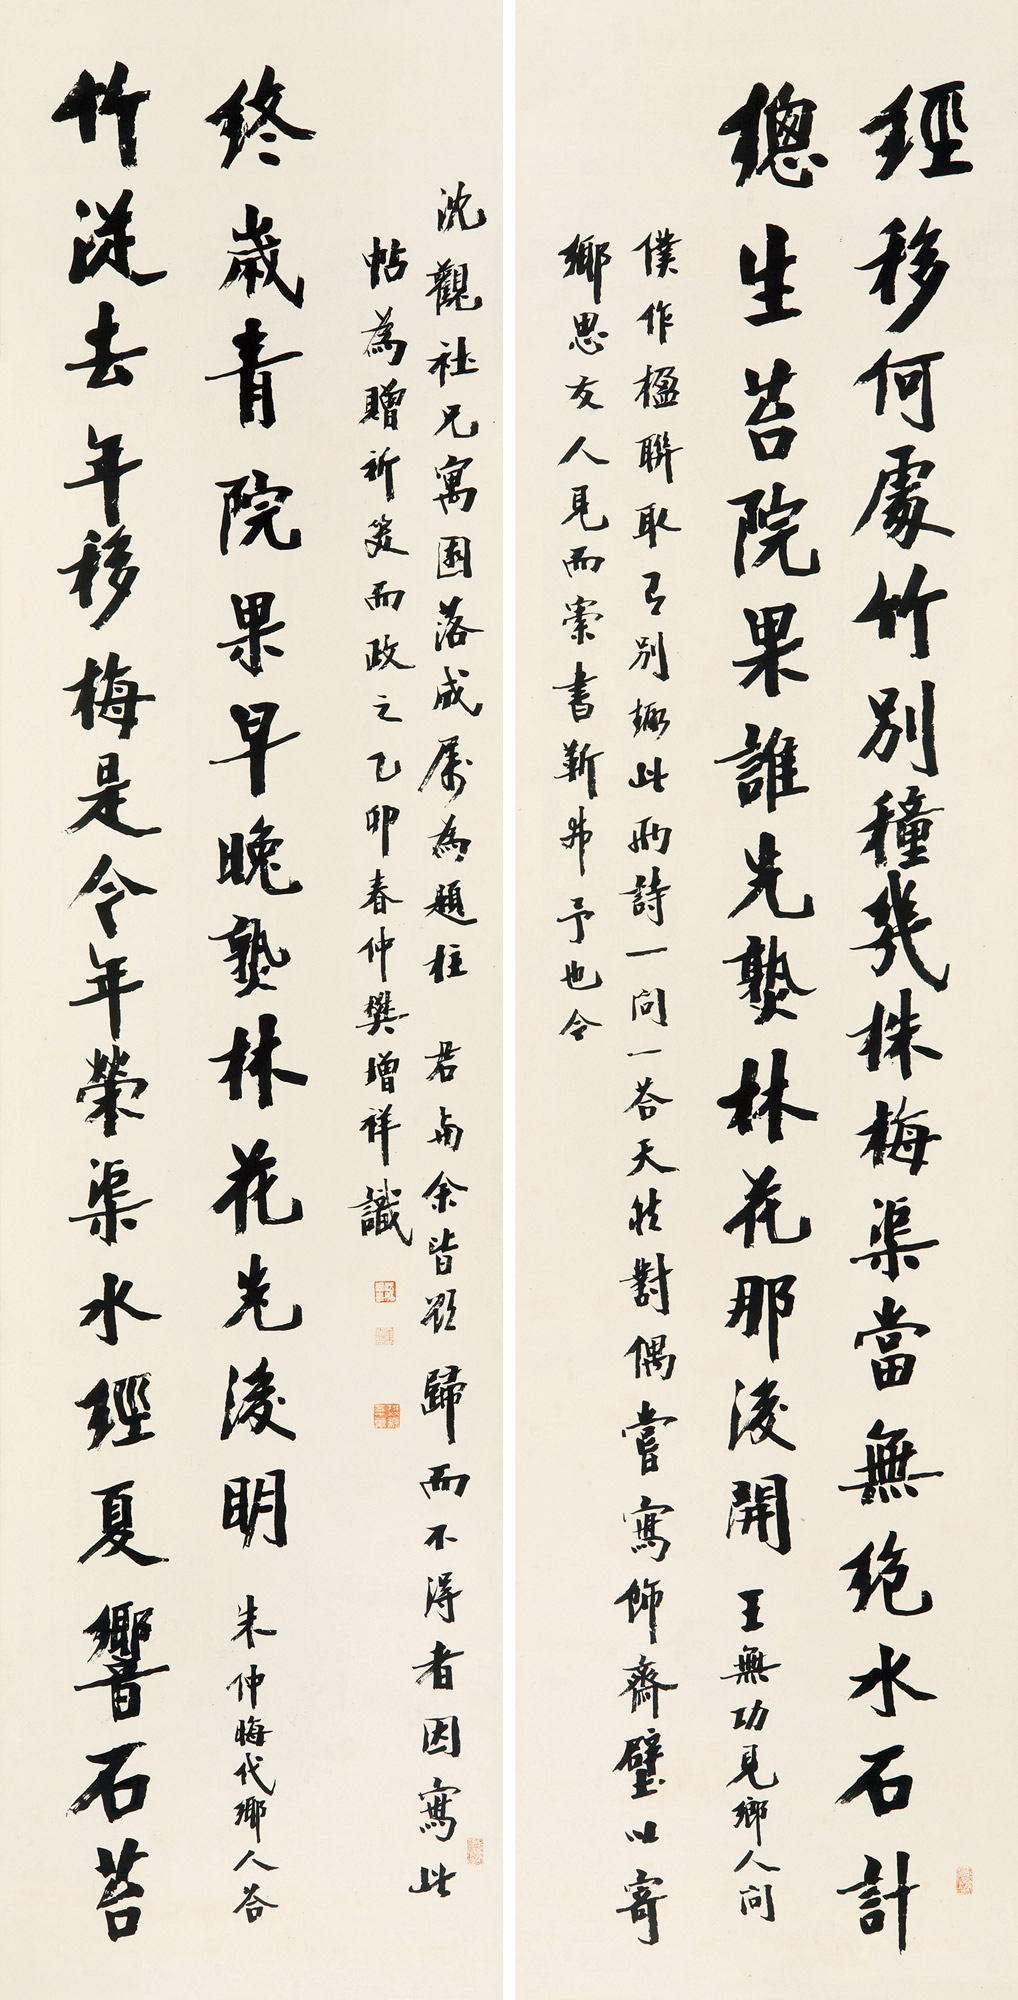 經移何處竹別種幾株梅渠當無絕水石計
總生苔院果誰先熟林花那後開 王無功見鄉人問
僕作楹聯取有別趣此兩詩一問一答天然對偶嘗寫飾齋壁以寄
鄉思友人見而索書靳弗予也今
沈觀社兄寓園落成屬為題柱 君與余皆欲歸而不得者因寫此
帖為贈祈笑而政之乙卯春仲樊增祥識
終歲青院果早晚熟林花先後明 朱仲晦代鄉人答
竹從去年移梅是今年榮渠水經夏響石苔